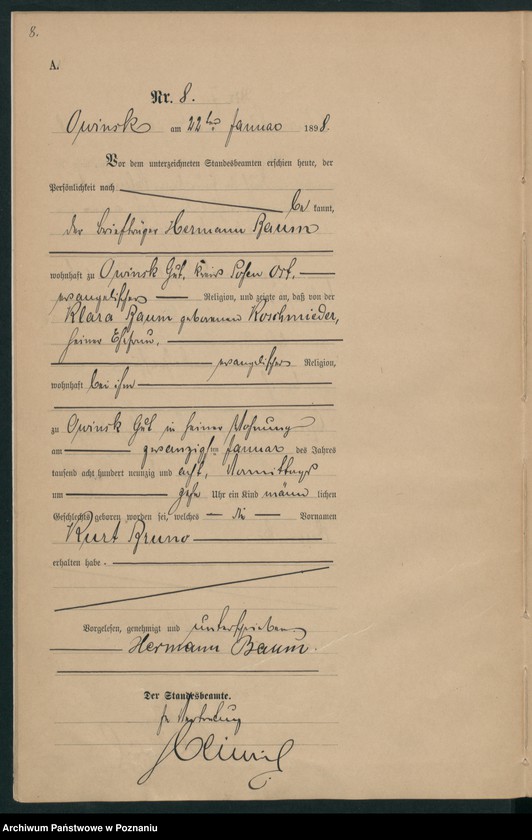 8.
A.
Nr. 8.
Owinsk am 22ten Januar 1898.
Vor dem unterzeichneten Standesbeamten erschien heute, der
Persönlichkeit nach
be kannt,
der Briefträger Hermann Baum
wohnhaft zu Owinsk Gut, Kreis Posen Ost,
evangelischer Religion, und zeigte an, daß von der
Klara Baum geborenen Koschmieder,
seiner Ehefrau,
evangelischer Religion,
wohnhaft bei ihm
zu Owinsk Gut in seiner Wohnung
am zwanzigsten Januar des Jahres
tausend acht hundert neunzig und acht, Vormittags
um zehn Uhr ein Kind männ lichen
Geschlechts geboren worden sei, welches die Vornamen
Kurt Bruno
erhalten habe.
Vorgelesen, genehmigt und unterschrieben
Hermann Baum.
Der Standesbeamte.
In Vertretung
Archiwum Państwowe w Poznaniu